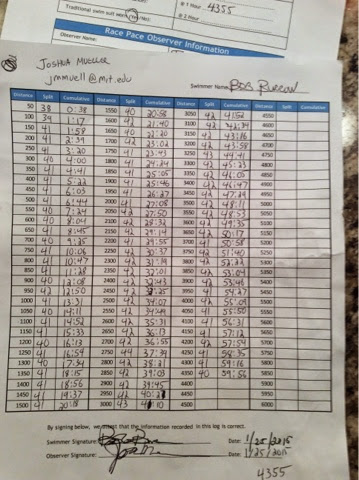 Traditional swim suit worn (Yes/No):
@ 1 Hour 4355
@ 2 Hour
Observer Name:
Race Pace Observer Information
JOSHUA MUELLER
jmmuell@mit.edu
Swimmer Name: BOB BURROW
Distance Split Cumulative Distance Split Cumulative Distance Split Cumulative Distance Split Cumulative
50 38 0:38 1550 40 20:58 3050 42 41:52 4550
100 39 1:17 1600 42 21:40 3100 42 42:34 4600
150 41 1:58 1650 40 22:20 3150 42 43:16 4650
200 41 2:39 1700 42 23:02 3200 42 43:58 4700
250 41 3:20 1750 41 23:43 3250 43 44:41 4750
300 40 4:00 1800 41 24:24 3300 42 45:23 4800
350 41 4:41 1850 41 25:05 3350 42 46:05 4850
400 41 5:22 1900 41 25:46 3400 42 46:47 4900
450 41 6:03 1950 41 26:27 3450 42 47:29 4950
500 41 6:44 2000 41 27:08 3500 42 48:11 5000
550 40 7:24 2050 42 27:50 3550 42 48:53 5050
600 40 8:04 2100 42 28:32 3600 42 49:35 5100
650 41 8:45 2150 42 29:14 3650 42 50:17 5150
700 40 9:25 2200 41 29:55 3700 41 50:58 5200
750 41 10:06 2250 42 30:37 3750 42 51:40 5250
800 41 10:47 2300 42 31:19 3800 42 52:22 5300
850 41 11:28 2350 42 32:01 3850 42 53:04 5350
900 40 12:08 2400 42 32:43 3900 42 53:46 5400
950 42 12:50 2450 42 33:25 3950 41 54:27 5450
1000 41 13:31 2500 42 34:07 4000 42 55:09 5500
1050 40 14:11 2550 42 34:49 4050 41 55:50 5550
1100 41 14:52 2600 42 35:31 4100 41 56:31 5600
1150 41 15:33 2650 42 36:13 4150 41 57:12 5650
1200 40 16:13 2700 42 36:55 4200 42 57:54 5700
1250 41 16:54 2750 44 37:39 4250 41 58:35 5750
1300 40 17:34 2800 42 38:21 4300 41 59:16 5800
1350 41 18:15 2850 42 39:03 4350 40 59:56 5850
1400 41 18:56 2900 42 39:45 4400 5900
1450 41 19:37 2950 42 40:27 4450 5950
1500 41 20:18 3000 43 41:10 4500 6000
By signing below, we attest that the information recorded in this log is correct.
Swimmer Signature: Date: 1/25/2015
Observer Signature: Date: 1/25/2015
4355